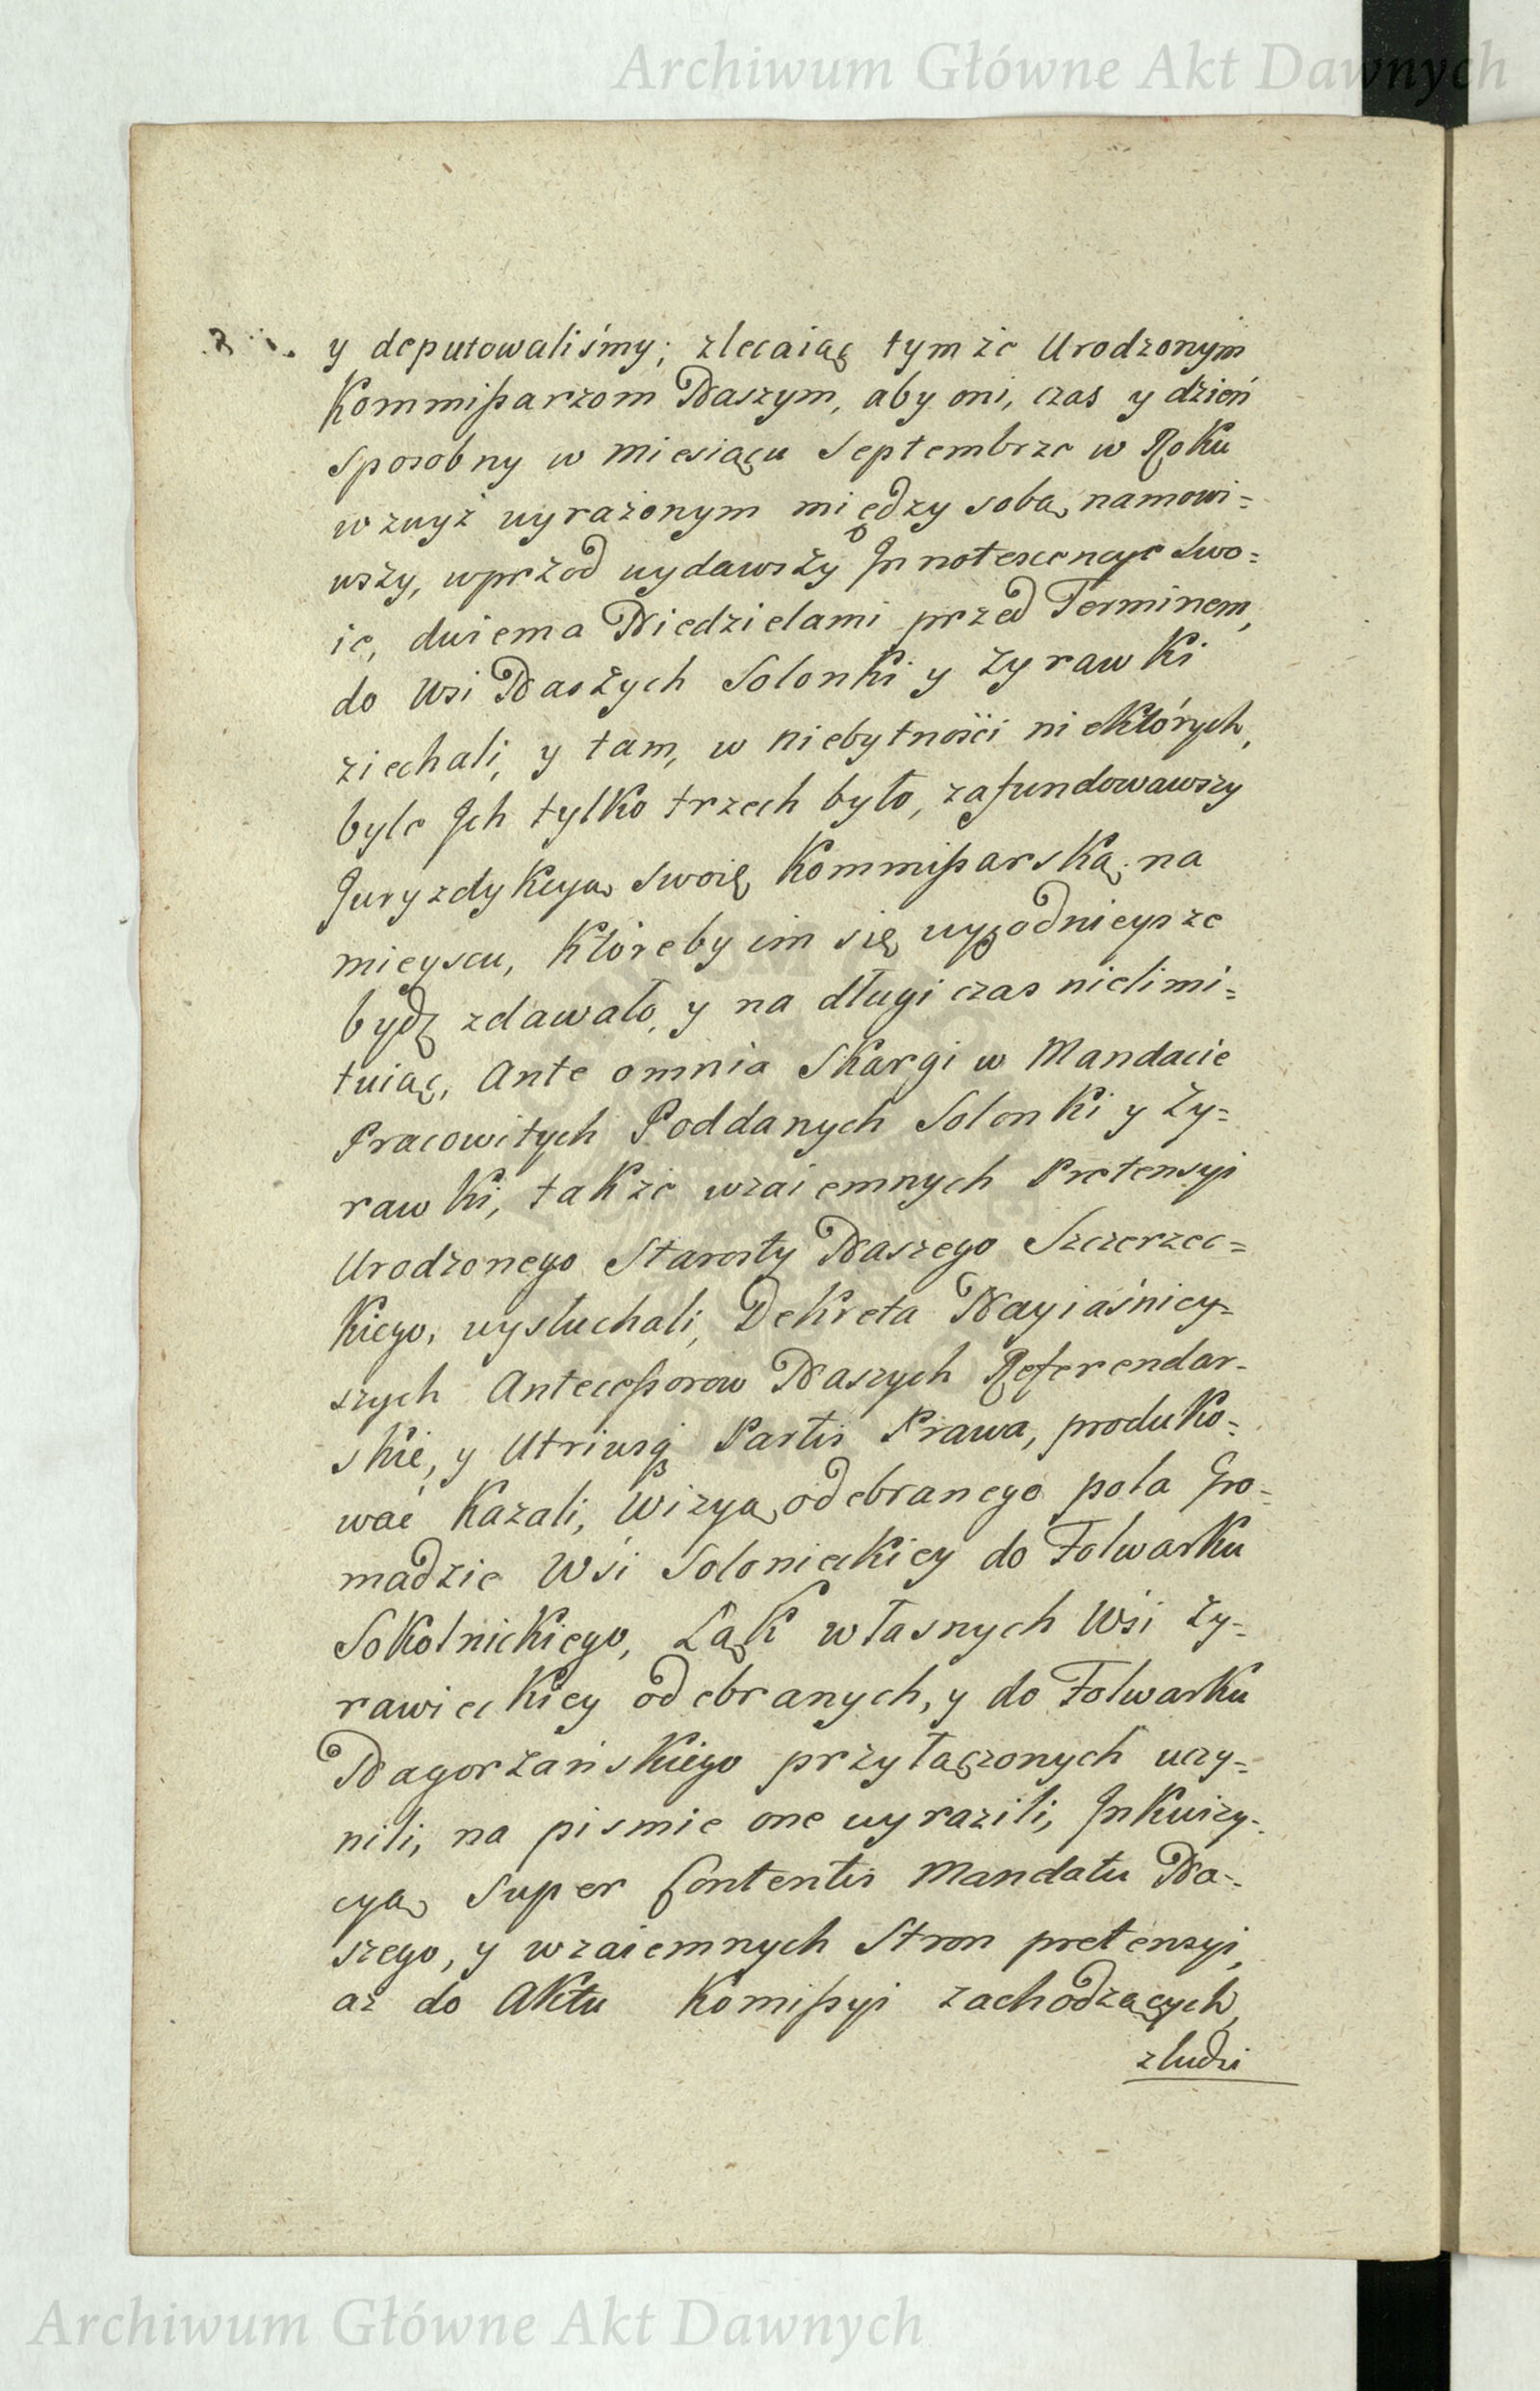 Archiwum Główne Akt Dawnych
y deputowaliśmy; zlecaiąc tymże Urodzonym
Kommißarzom Naszym, aby oni, czas y dzień
sposobny w Miesiącu Septembrze w Roku
wzwyż wyrażonym między sobą namowi=
wszy, wprzod wydawszy Innotescencye swo=
ie, dwiema Niedzielami przed Terminem,
do Wsi Naszych Solonki y Żyrawki
ziechali, y tam, w niebytności niektórych,
byle Ich tylko trzech było, zafundowawszy
Juryzdykcyą swoię Kommißarską na
mieyscu, któreby im się wygodnieysze
bydź zdawało, y na długi czas nielimi=
tuiąc, Ante omnia Skargi w Mandacie
Pracowitych Poddanych Solonki y Ży=
rawki, także wzaiemnych Pretensyi
Urodzonego Starosty Naszego Szczerzec=
kiego, wysłuchali, Dekreta Nayiaśniey=
szych Anteceßorow Naszych Referendar=
skie, y Utriusq Partis Prawa, produko=
wać kazali, Wizyą odebranego pola Gro=
madzie Wsi Solonieckiey do Folwarku
Sokolnickiego, Łąk własnych Wsi Ży=
rawieckiey odebranych, y do Folwarku
Nagorzańskiego przyłączonych uczy=
nili, na pismie one wyrazili, Inkwizy=
cyą Super Contentis Mandatu Na=
szego, y wzaiemnych Stron pretensyi,
aż do Aktu Komißyi zachodzących,
z ludzi
Archiwum Główne Akt Dawnych